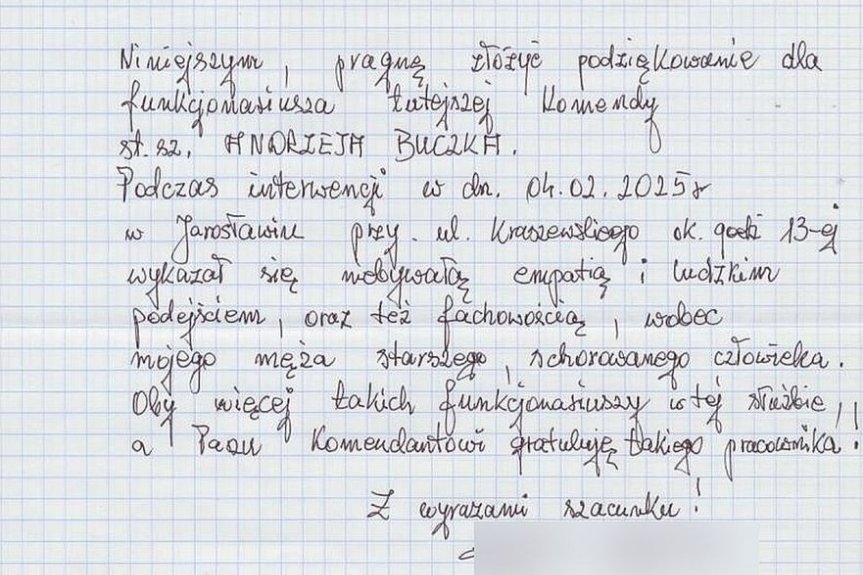 Niniejszym, pragnę złożyć podziękowanie dla
funkcjonariusza tutejszej Komendy
st. sz. ANDRZEJA BUCZKA.
Podczas interwencji w dn. 04.02.2025r
w Jarosławiu przy. ul. Kraszewskiego ok. godz 13-ej
wykazał się niebywałą empatią i ludzkim
podejściem, oraz też fachowością, wobec
mojego męża starszego, schorowanego człowieka.
Oby więcej takich funkcjonariuszy w tej służbie,
a Panu Komendantowi gratuluję takiego pracownika!
Z wyrazami szacunku!